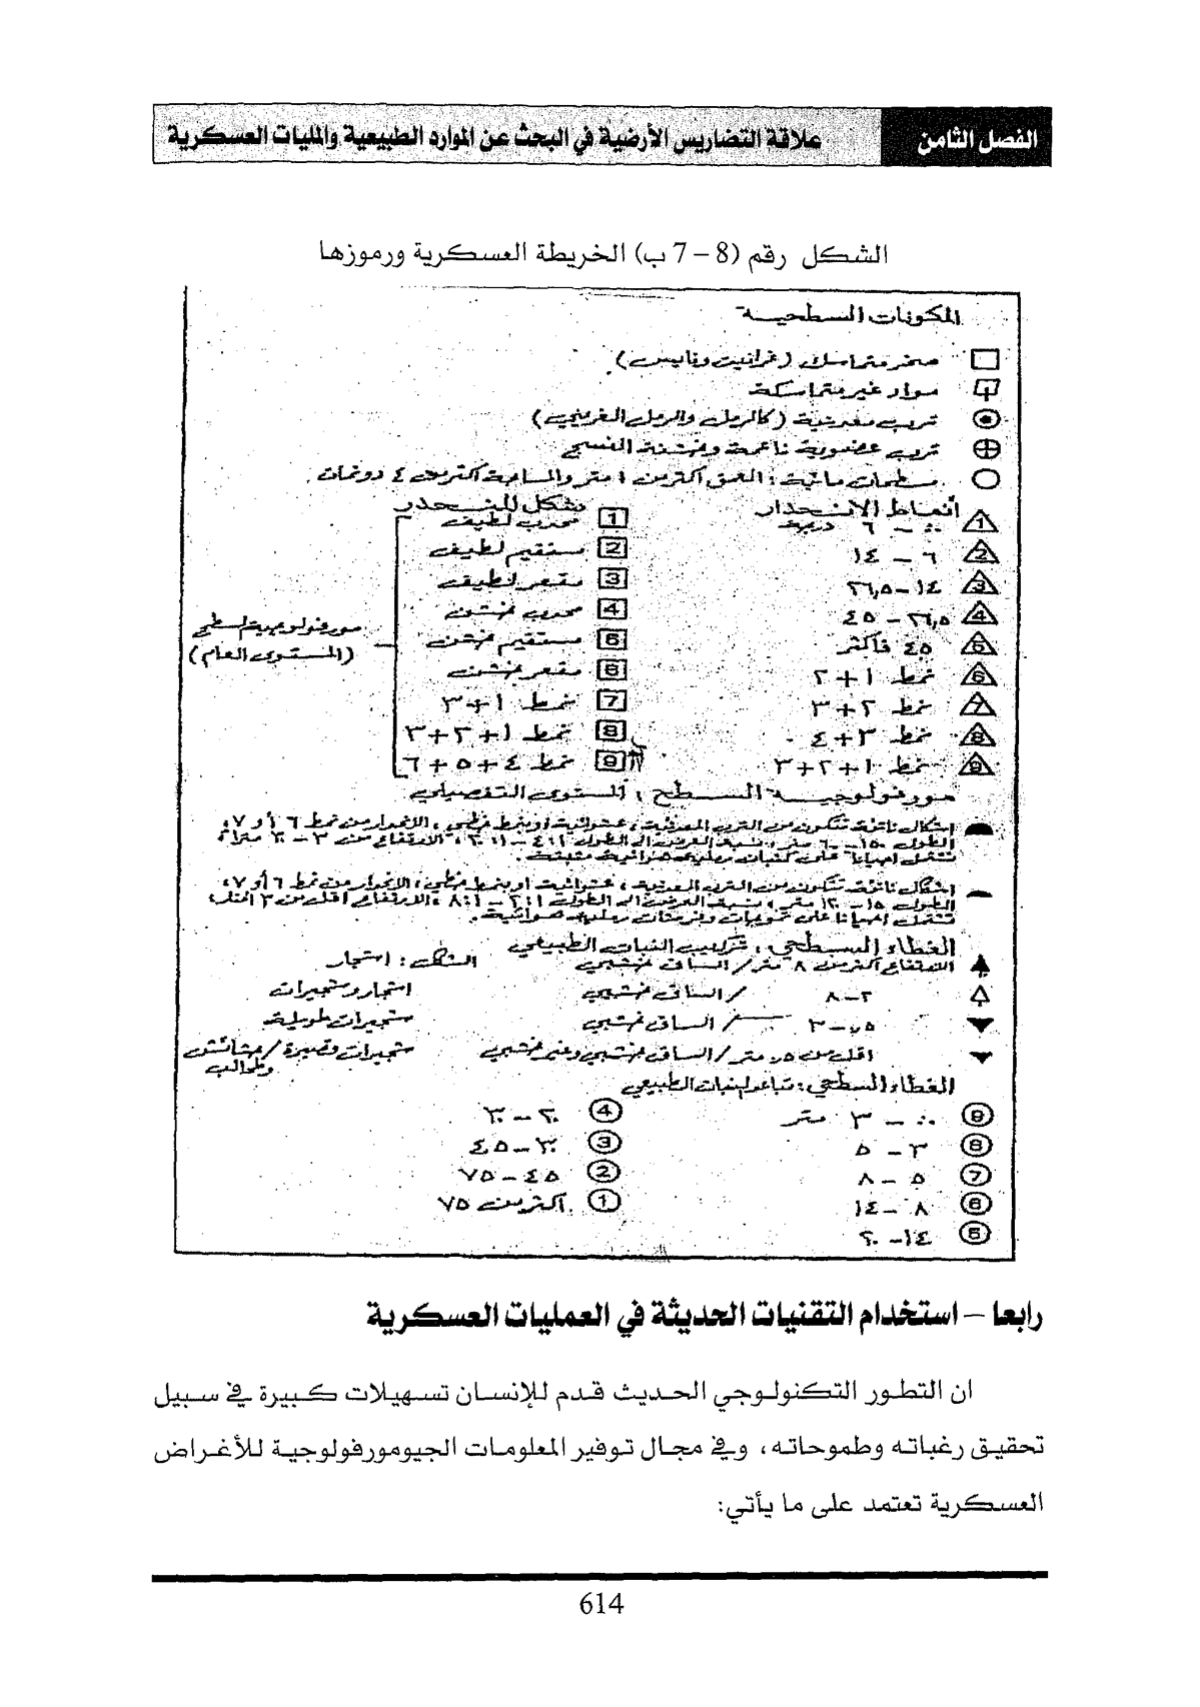 الفصل الثامن علاقة التضاريس الأرضية في البحث عن الموارد الطبيعية والمليات العسكرية
الشكل رقم (8 – 7 ب) الخريطة العسكرية ورموزها
المكونات السطحية
صخر متماسك (غرانيت ونايس)
مواد غير متماسكة
ترب معدنية (كالرمل والرمل الغريني)
ترب عضوية ناعمة وخشنة النسج
مسطحات مائية : العمق أكثر من ١ متر والمساحة أكثر من ٤ دونمات
أنماط الانحدار
1 ٠ – ٦ درجة
2 ٦ – ١٤
3 ١٤ – ٢٦,٥
4 ٢٦,٥ – ٤٥
5 ٤٥ فأكثر
6 نمط ١ + ٢
7 نمط ٢ + ٣
8 نمط ٣ + ٤
9 نمط ١ + ٢ + ٣
شكل المنحدر
1 محدب لطيف
2 مستقيم لطيف
3 مقعر لطيف
4 محدب خشن
5 مستقيم خشن
6 مقعر خشن
7 نمط ١ + ٣
8 نمط ١ + ٢ + ٣
9 نمط ٤ + ٥ + ٦
مورفولوجية السطح
(المستوى العام)
مورفولوجية السطح : المستوى التفصيلي
اشكال ناتئة تتكون من الترب المعدنية ، عشوائية او بنمط خطي ، الانحدار من نمط ٦ أو ٧ ،
الطول ١٥٠ – ٦٠٠ متر ، نسبة العرض الى الطول ، الارتفاع من ٣ – ٣٠ مترا ،
تشتمل احيانا على كثبان رملية هوائية مثبتة .
اشكال ناتئة تتكون من الترب المعدنية ، عشوائية او بنمط خطي ، الانحدار من نمط ٦ أو ٧ ،
الطول ١٥ – ١٢٠ متر ، نسبة العرض الى الطول ١ : ٢ – ١ : ٨ ، الارتفاع اقل من ٣ امتار ،
تشتمل احيانا على تموجات رملية هوائية .
الغطاء السطحي : تركيب النبات الطبيعي
الارتفاع أكثر من ٨ متر / الساق خشبي الشكل : اشجار
٢ – ٨ / الساق خشبي اشجار وشجيرات
/ الساق خشبي شجيرات طويلة
اقل من ٧٥. متر / الساق خشبي وغير خشبي شجيرات قصيرة / حشائش
وطحالب
الغطاء السطحي : تباعد النبات الطبيعي
9 ٠ – ٣ متر
8 ٣ – ٥
7 ٥ – ٨
6 ٨ – ١٤
5 ١٤ – ٢٠
4 ٢٠ – ٣٠
3 ٣٠ – ٤٥
2 ٤٥ – ٧٥
1 أكثر من ٧٥
رابعا – استخدام التقنيات الحديثة في العمليات العسكرية
ان التطور التكنولوجي الحديث قدم للإنسان تسهيلات كبيرة في سبيل
تحقيق رغباته وطموحاته، وفي مجال توفير المعلومات الجيومورفولوجية للأغراض
العسكرية تعتمد على ما يأتي:
614